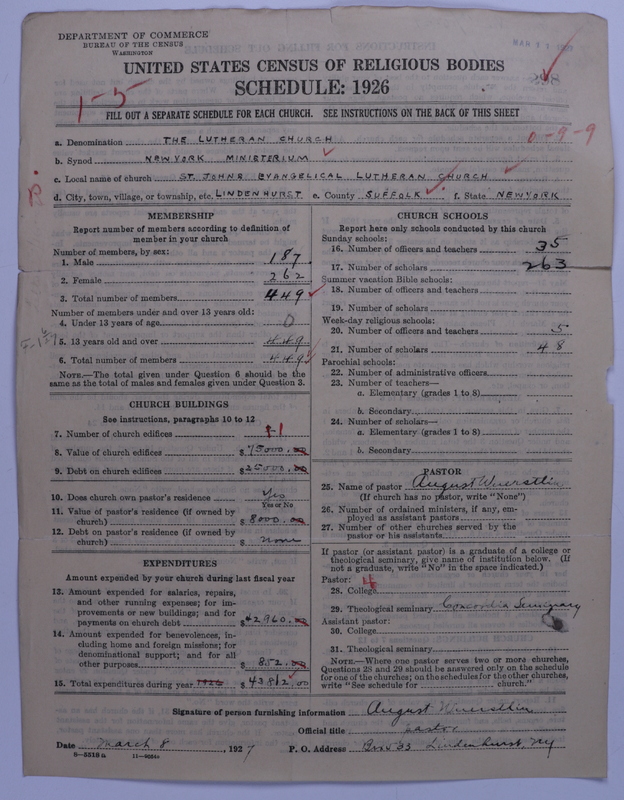 DEPARTMENT OF COMMERCE
BUREAU OF THE CENSUS
WASHINGTON
UNITED STATES CENSUS OF RELIGIOUS BODIES
SCHEDULE: 1926
1-5
FILL OUT A SEPARATE SCHEDULE FOR EACH CHURCH. SEE INSTRUCTIONS ON THE BACK OF THIS SHEET
a. Denomination THE LUTHERAN CHURCH
0-9-9
b. Synod NEW YORK MINISTERIUM
c. Local name of church ST. JOHNS EVANGELICAL LUTHERAN CHURCH
d. City, town, village, or township, etc. LINDENHURST e. County SUFFOLK f. State NEW YORK
MEMBERSHIP
Report number of members according to definition of
member in your church
Number of members, by sex:
1. Male 187
2. Female 262
3. Total number of members 449
Number of members under and over 13 years old:
4. Under 13 years of age 0
5. 13 years old and over 449
6. Total number of members 449
NOTE.—The total given under Question 6 should be
the same as the total of males and females given under Question 3.
CHURCH BUILDINGS
See instructions, paragraphs 10 to 12
7. Number of church edifices 1
8. Value of church edifices $75000.00
9. Debt on church edifices $25000.00
10. Does church own pastor's residence Yes
Yes or No
11. Value of pastor's residence (if owned by
church) $8000.00
12. Debt on pastor's residence (if owned by
church) $ none
EXPENDITURES
Amount expended by your church during last fiscal year
13. Amount expended for salaries, repairs,
and other running expenses; for im-
provements or new buildings; and for
payments on church debt $42960.00
14. Amount expended for benevolences, in-
cluding home and foreign missions; for
denominational support; and for all
other purposes $852.00
15. Total expenditures during year 1926 $43812.00
CHURCH SCHOOLS
Report here only schools conducted by this church
Sunday schools:
16. Number of officers and teachers 35
17. Number of scholars 263
Summer vacation Bible schools:
18. Number of officers and teachers
19. Number of scholars
Week-day religious schools:
20. Number of officers and teachers 5
21. Number of scholars 48
Parochial schools:
22. Number of administrative officers
23. Number of teachers—
a. Elementary (grades 1 to 8)
b. Secondary
24. Number of scholars—
a. Elementary (grades 1 to 8)
b. Secondary
PASTOR
25. Name of pastor August Wuerstlin
(If church has no pastor, write "None")
26. Number of ordained ministers, if any, em-
ployed as assistant pastors
27. Number of other churches served by the
pastor or his assistants
If pastor (or assistant pastor) is a graduate of a college or
theological seminary, give name of institution below. (If
not a graduate, write "No" in the space indicated.)
Pastor: 4
28. College
29. Theological seminary Concordia Seminary
Assistant pastor:
30. College
31. Theological seminary
NOTE.—Where one pastor serves two or more churches,
Questions 28 and 29 should be answered only on the schedule
for one of the churches; on the schedules for the other churches,
write "See schedule for church."
Signature of person furnishing information August Wuerstlin
Official title pastor
Date March 8, 1927 P. O. Address Box 33 Lindenhurst, NY
8—5318a 11—9654